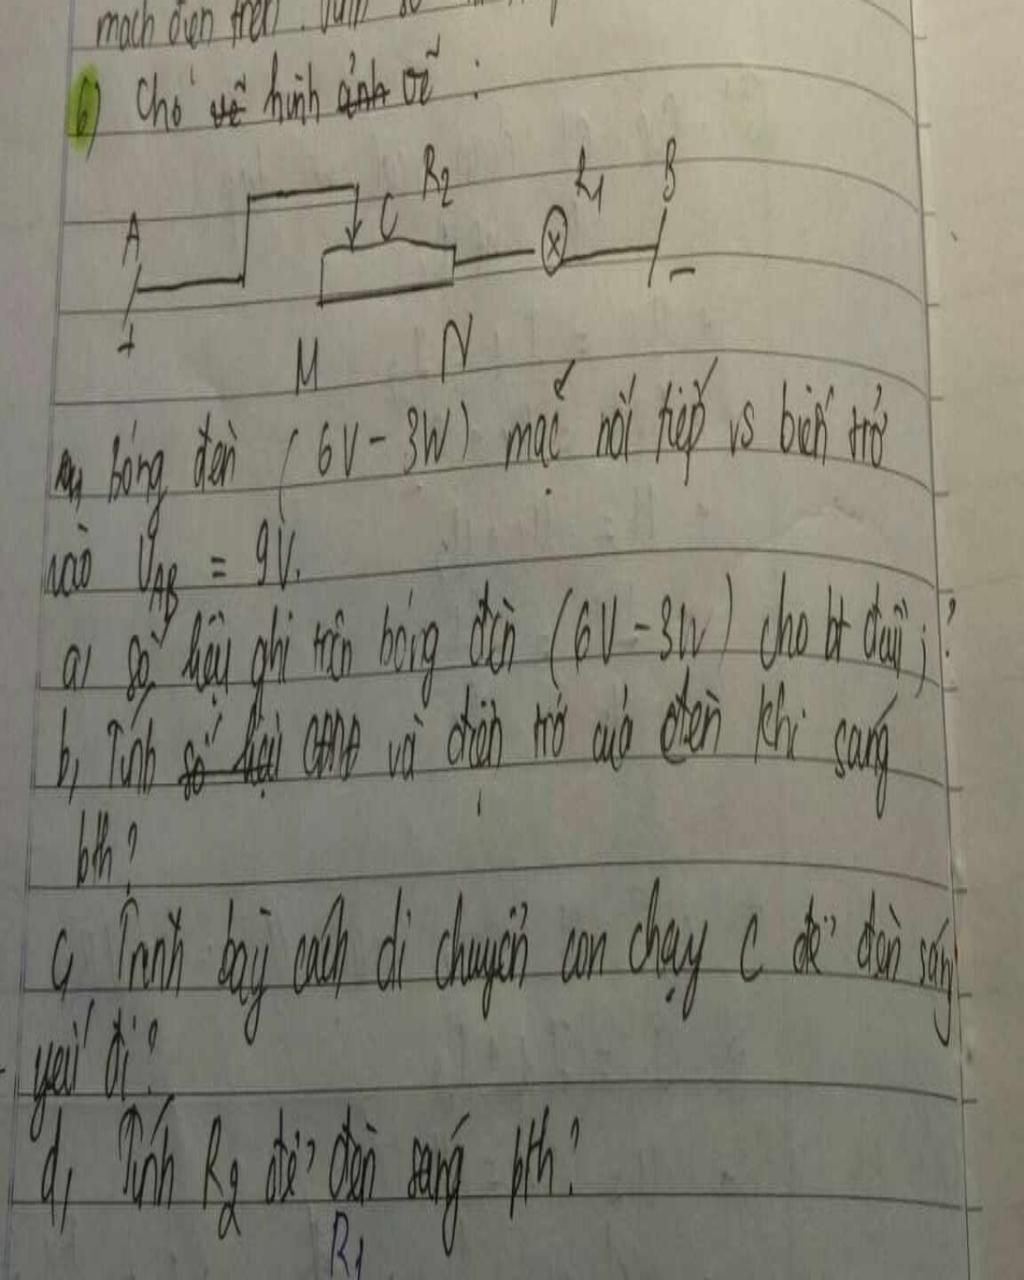 mạch điện trên.
6) Cho hình vẽ :
R2 R1 B
A C
+ -
M N
bóng đèn (6V - 3W) mắc nối tiếp vs biến trở
vào UAB = 9V.
a, số hiệu ghi trên bóng đèn (6V - 3W) cho bt đại ;?
b, Tính CĐDĐ và điện trở của đèn khi sáng
bth?
c, Trình bày cách di chuyển con chạy C để đèn sáng
yếu đi?
d, Tính R2 để đèn sáng bth?
R1